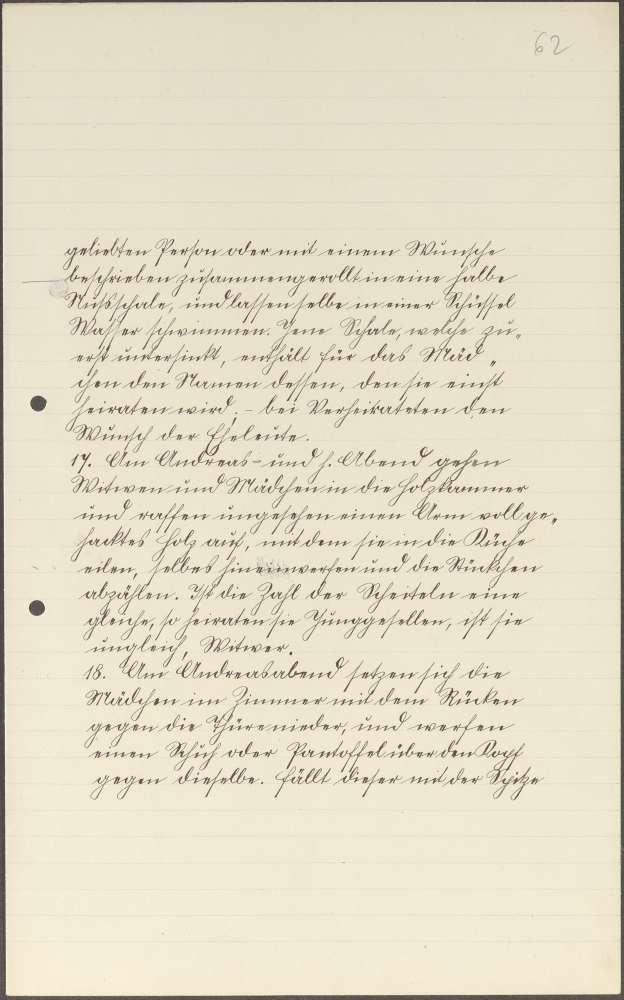 62
geliebten Person oder mit einem Wunsche
beschrieben zusammengerollt in eine halbe
Nußschale, und lassen selbe in einer Schüssel
Wasser schwimmen. Jene Schale, welche zu-
erst untersinkt, enthält für das Mäd„
chen den Namen dessen, den sie einst
heiraten wird; – bei Verheirateten den
Wunsch der Eheleute.
17. Am Andreas- und h. Abend gehen
Witwen und Mädchen in die Holzkammer
und raffen ungesehen einen Arm voll ge„
hacktes Holz auf, mit dem sie in die Küche
eilen, selbes hineinwerfen und die Stückchen
abzählen. Ist die Zahl der Scheiteln eine
gleiche, so heiraten sie Junggesellen, ist sie
ungleich, Witwer.
18. Am Andreasabend setzen sich die
Mädchen im Zimmer mit dem Rücken
gegen die Thüre nieder, und werfen
einen Schuh oder Pantoffel über den Kopf
gegen dieselbe. Fällt dieser mit der Spitze